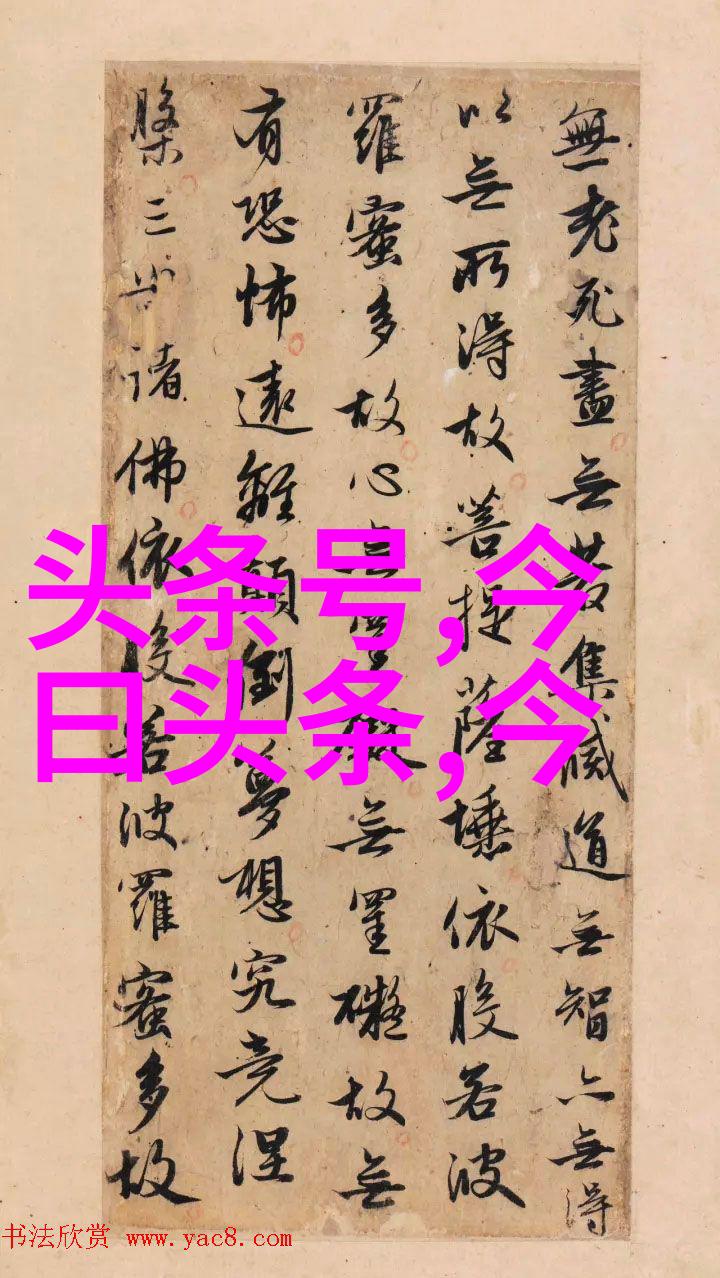 無老死盡無苦集滅道無智亦無得
以無所得故菩提薩埵依般若波
羅蜜多故心無罣礙無罣礙故無
有恐怖遠離顛倒夢想究竟涅
槃三世諸佛依般若波羅蜜多故
头条号,今
日头条,今
书法欣赏 www.yac8.com